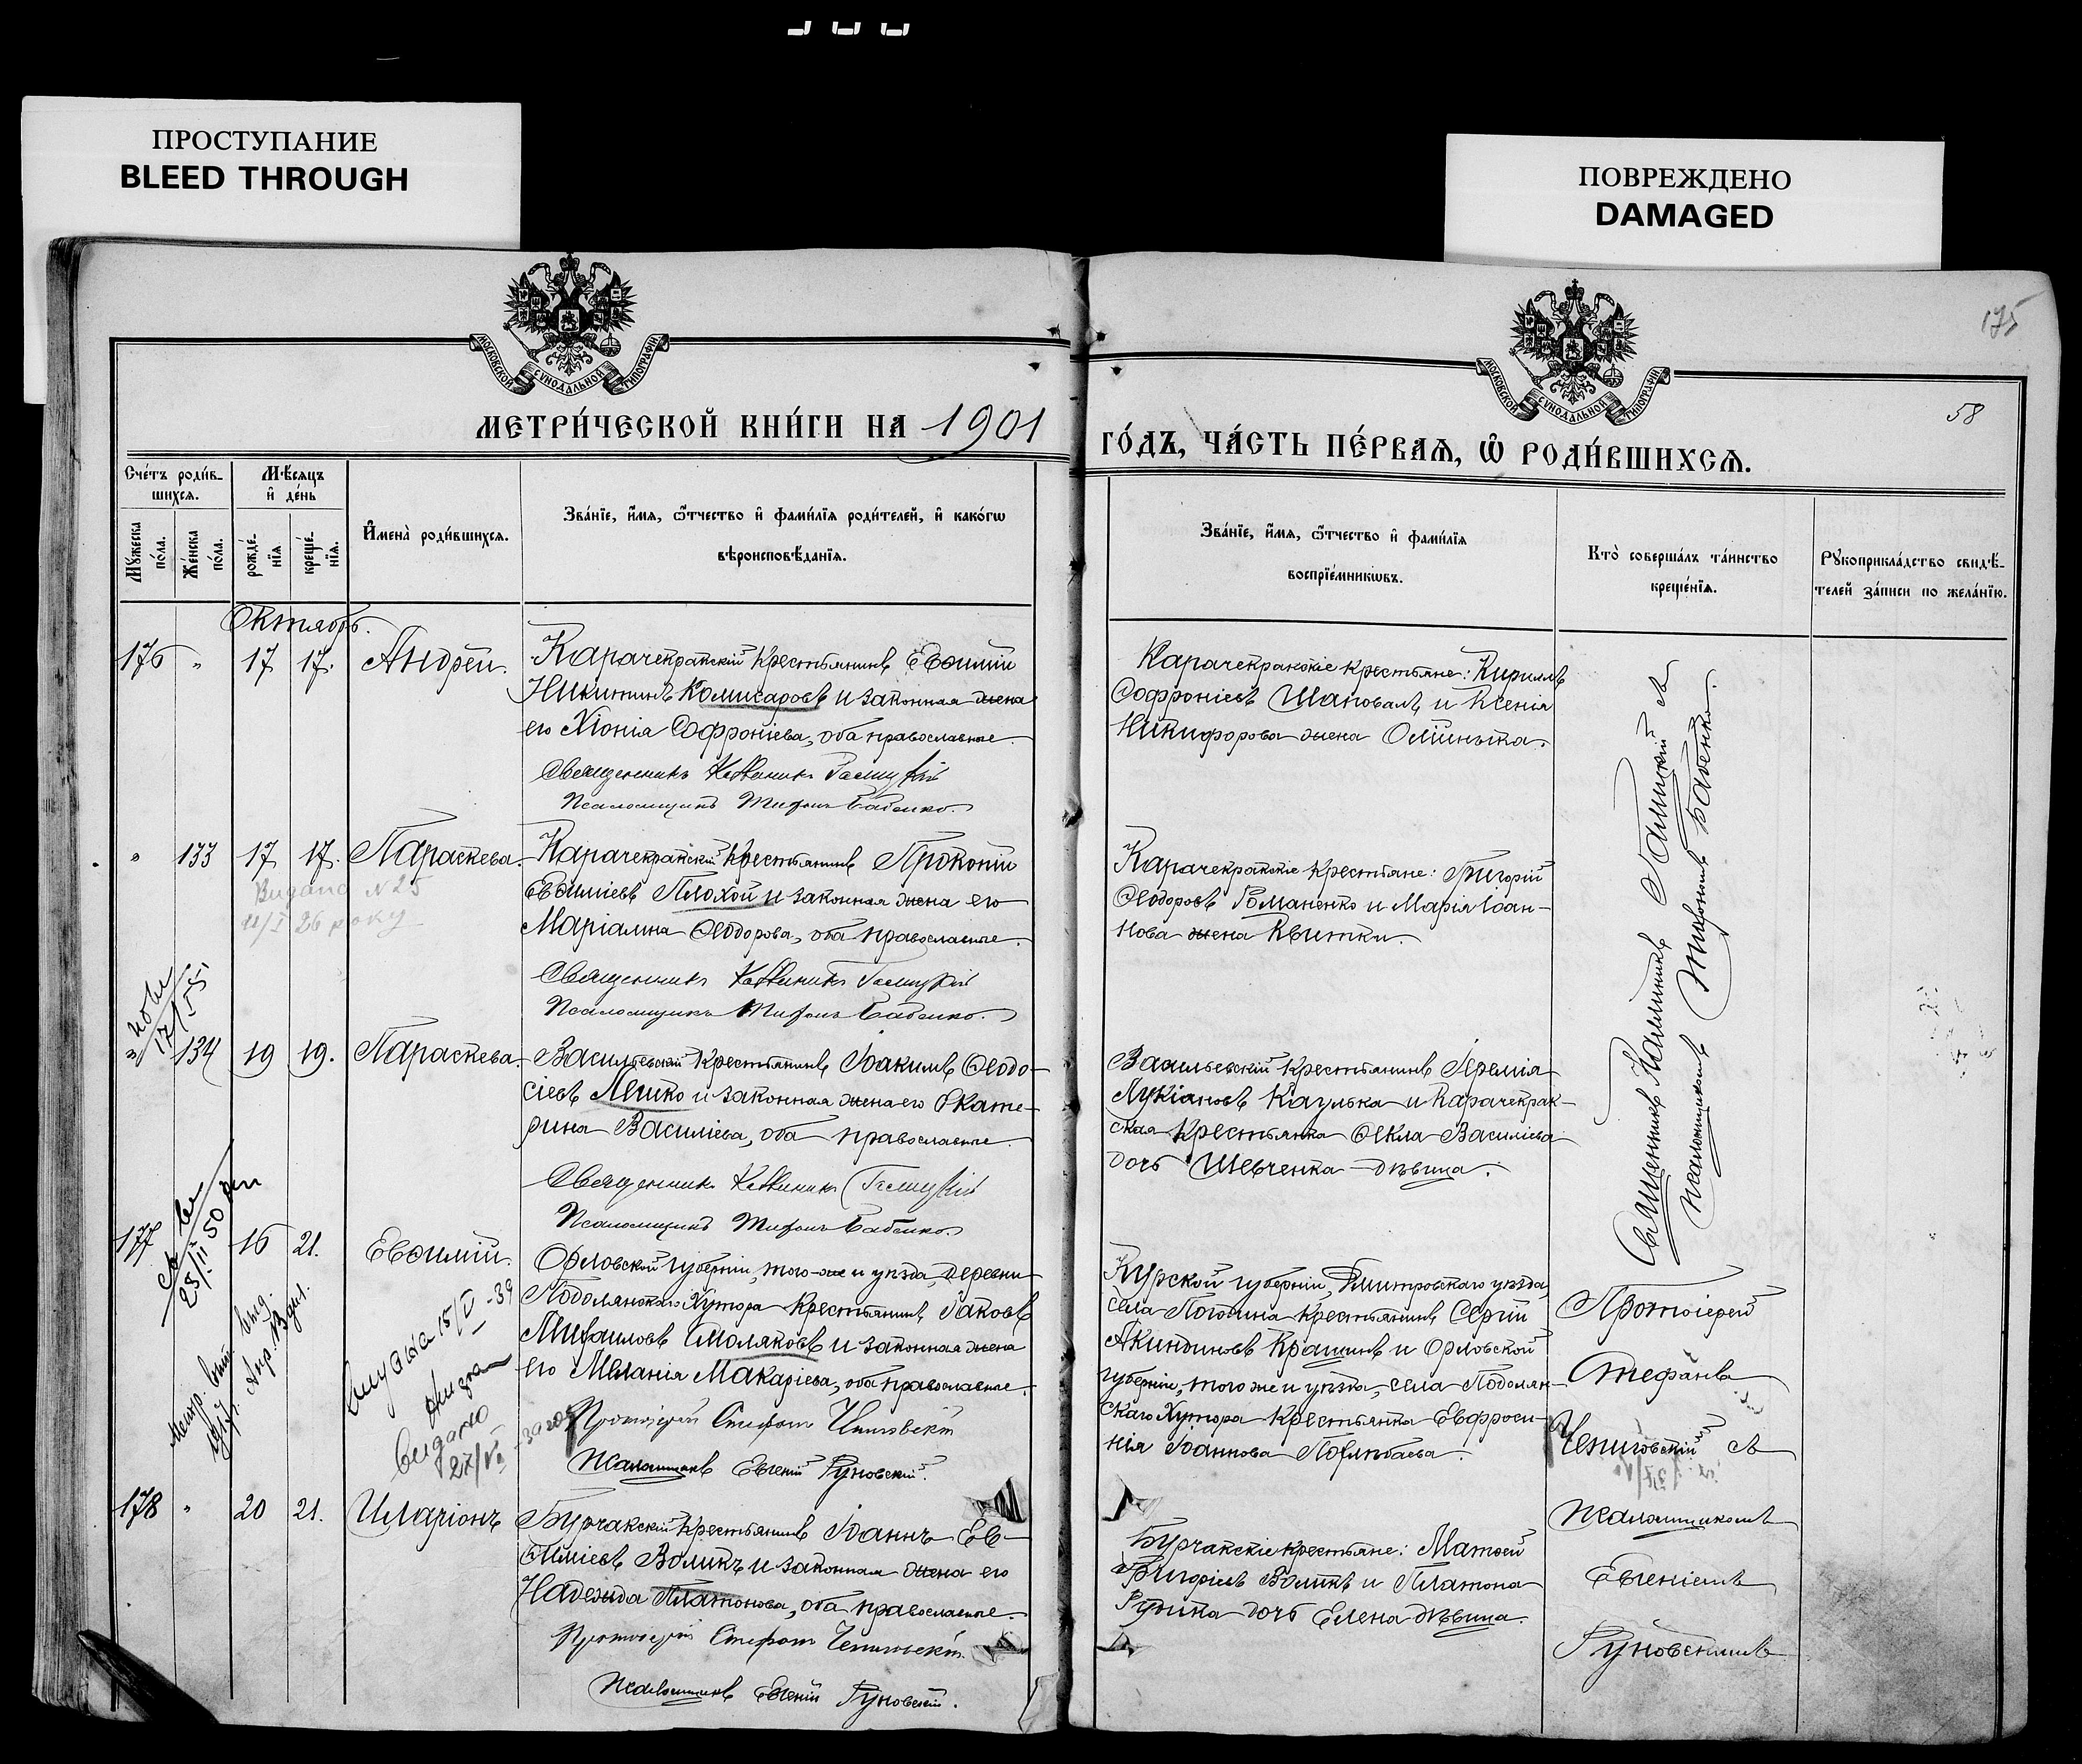 ПРОСТУПАНИЕ
BLEED THROUGH
ПОВРЕЖДЕНО
DAMAGED
МОСКОВСКОЙ СУНОДАЛЬНОЙ ТИПОГРАФІИ
МОСКОВСКОЙ СУНОДАЛЬНОЙ ТИПОГРАФІИ
175
58
МЕТРИ́ЧЕСКОЙ КНИ́ГИ НА 1901
ГО́ДЪ, ЧА́СТЬ ПЕ́РВАѦ, Ѡ РОДИ́ВШИХСѦ.
Сче́тъ роди́в-
шихсѧ.
Мѣ́сѧцъ
и҆ де́нь
Мꙋ́жеска по́ла.
Же́нска по́ла.
рожде́нїѧ
креще́нїѧ.
И҆мена̀ роди́вшихсѧ.
Зва́нїе, и҆́мѧ, ѻ҆́тчество и҆ фами́лїѧ роди́телей, и҆ како́гѡ
вѣроисповѣ́данїѧ.
Зва́нїе, и҆́мѧ, ѻ҆́тчество и҆ фами́лїѧ
воспрїе́мникѡвъ.
Кто̀ соверша́лъ та́инство
креще́нїѧ.
Рꙋкоприкла́дство свидѣ́-
телей за́писи по жела́нїю.
Октябрь.
176 " 17 17. Андрей.
Карачекракскій крестьянинъ Евѳимій
Никитинъ Комисаровъ и законная жена
его Хіонія Софроніева, оба православные.
Священникъ Каллиникъ
Псаломщикъ Тифонъ Бабенко.
Карачекракскіе крестьяне: Кириллъ
Софроніевъ Шаповалъ и Ксенія
Никифорова жена
" 133 17 17. Параскева.
Видана N 25
36 року
Карачекракскій крестьянинъ Прокопій
Евѳиміевъ Плохой и законная жена его
Маріамна Ѳеодорова, оба православные.
Священникъ Каллиникъ
Псаломщикъ Тифонъ Бабенко.
Карачекракскіе крестьяне: Григорій
Ѳеодоровъ Романенко и Марія Іоан-
нова жена Квитки.
17/ 55
" 134 19 19. Параскева.
Васильевскій крестьянинъ Іоакимъ Ѳеодо-
сіевъ Лешко и законная жена его Екате-
рина Василіева, оба православные.
Священникъ Каллиникъ
Псаломщикъ Тифонъ Бабенко.
Васильевскій крестьянинъ Іеремія
Лукіановъ Кагулька и Карачекрак-
ская крестьянка Ѳекла Василіева
дочь Шевченка дѣвица.
Священникъ Каллиникъ съ
псаломщикомъ Тифономъ Бабенко.
25/II 50
177 16 21. Евѳимій.
15/V -39
видано
27/VI
Орловской губерніи, того-же и уѣзда, деревни
Подолянскаго Хутора крестьянинъ Іаковъ
Михаиловъ Смоляковъ и законная жена
его Меланія Макаріева, оба православные.
Протоіерей Стефанъ Чепиговскій
Псаломщикъ Евгеній Руновскій.
Курской губерніи, Дмитровскаго уѣзда,
села Погодина крестьянинъ Сергій
Акиндиновъ Крашинъ и Орловской
губерніи, того же и уѣзда, села Подолян-
скаго Хутора крестьянка Евфроси-
нія Іоаннова
Протоіерей
Стефанъ
Чепиговскій съ
псаломщикомъ
Евгеніемъ
Руновскимъ
178 " 20 21. Иларіонъ
Бурчакскій крестьянинъ Іоаннъ Ев-
ѳиміевъ Воликъ и законная жена его
Надежда Платонова, оба православные.
Протоіерей Стефанъ Чепиговскій.
Псаломщикъ Евгеній Руновскій.
Бурчакскіе крестьяне: Матѳей
Григоріевъ Воликъ и Платона
дочь Елена дѣвица.